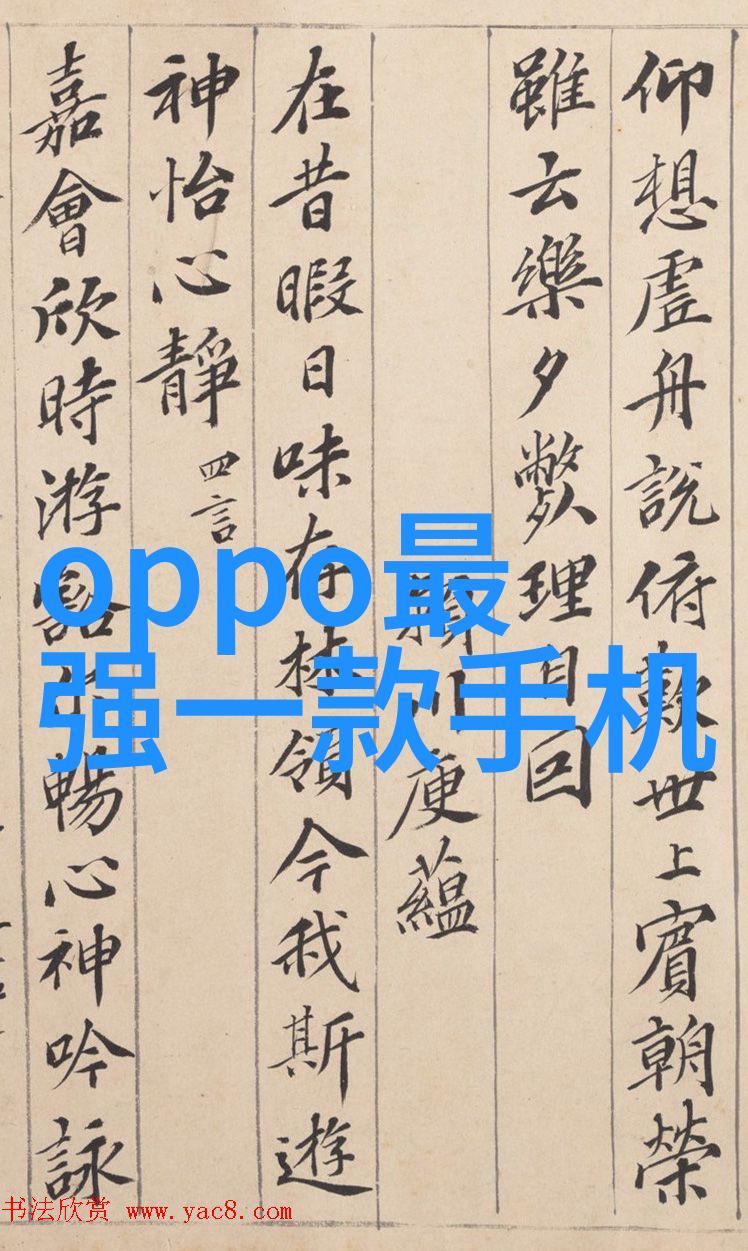 仰想虛舟說俯歎世上賓朝榮
雖云樂夕斃理自回
庾蘊
在昔暇日味存林領今我斯遊
神怡心靜
四言
嘉會欣時游豁尒暢心神吟詠
oppo最
强一款手机
书法欣赏 www.yac8.com